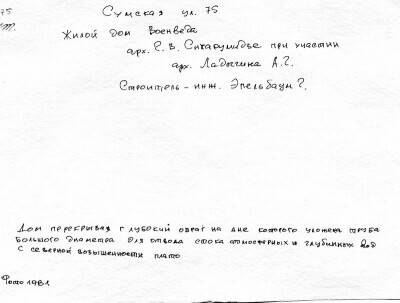 75
Сумская ул. 75
Жилой дом военведа
арх. при участии
арх. Ладыгина А.Г.
Строитель - инж. Эпельбаум Г.
Дом перекрывая глубокий овраг на дне которого уложена труба
большого диаметра для отвода стока атмосферных и глубинных вод
с северной возвышенности плато
Фото 1981